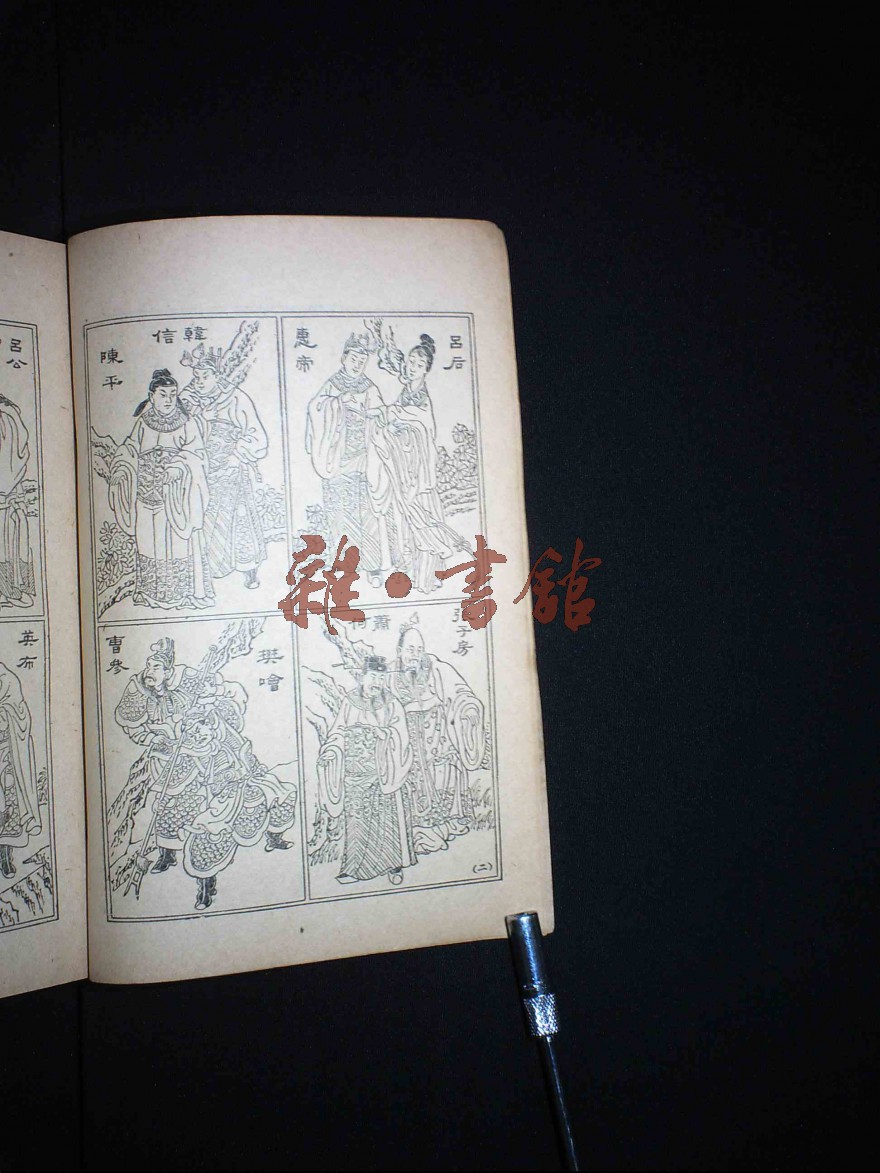 呂后
惠帝
韓信
陳平
張子房
蕭何
樊噲
曹參
(二)
呂公
英布
雜·書館